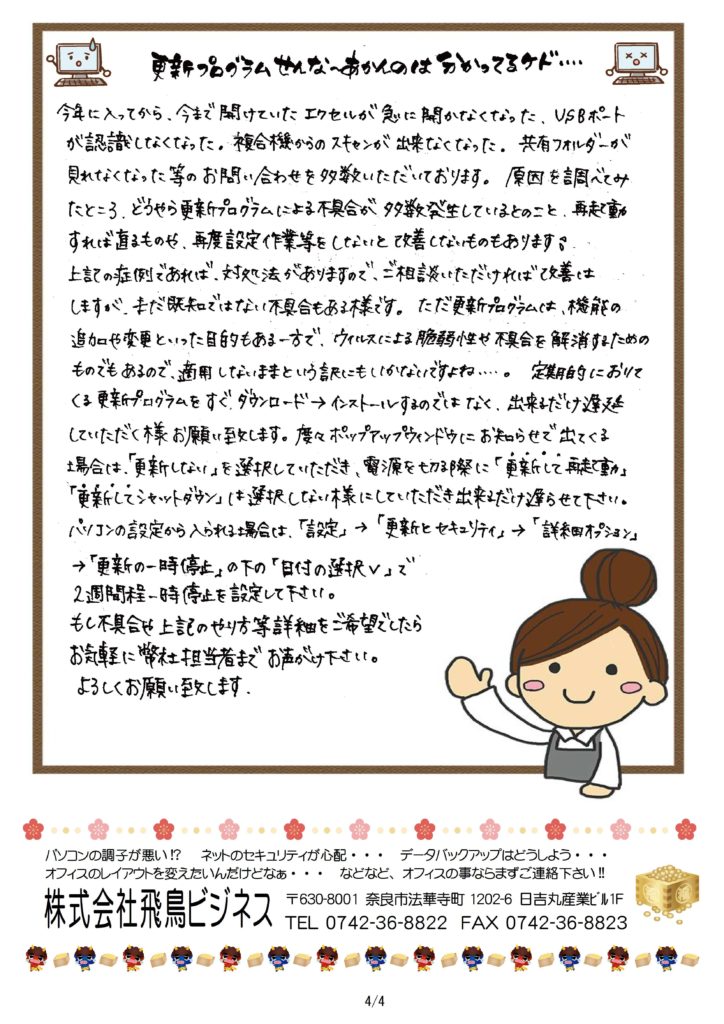 更新プログラムせんな〜あかんのは分かってるケド‥‥
今年に入ってから、今まで開けていたエクセルが急に開かなくなった、USBポート
が認識しなくなった。複合機からのスキャンが出来なくなった。共有フォルダーが
見れなくなった等のお問い合わせを多数いただいております。原因を調べてみ
たところ、どうやら更新プログラムによる不具合が多数発生しているとのこと、再起動
すれば直るものや、再度設定作業等をしないと改善しないものもあります。
上記の症例であれば、対処法がありますので、ご相談いただければ改善は
しますが、まだ既知ではない不具合もある様です。ただ更新プログラムは、機能の
追加や変更といった目的もある一方で、ウィルスによる脆弱性や不具合を解消するための
ものでもあるので、適用しないままという訳にもいかないですよね‥‥。定期的におりて
くる更新プログラムをすぐダウンロード→インストールするのではなく、出来るだけ遅延
していただく様お願い致します。度々ポップアップウィンドウにお知らせで出てくる
場合は、「更新しない」を選択していただき、電源を切る際に「更新して再起動」
「更新してシャットダウン」は選択しない様にしていただき出来るだけ遅らせて下さい。
パソコンの設定から入られる場合は、「設定」→「更新とセキュリティ」→「詳細オプション」
→「更新の一時停止」の下の「日付の選択∨」で
2週間程一時停止を設定して下さい。
もし不具合や上記のやり方等詳細をご希望でしたら
お気軽に弊社担当者までお声がけ下さい。
よろしくお願い致します.
パソコンの調子が悪い!? ネットのセキュリティが心配・・・ データバックアップはどうしよう・・・
オフィスのレイアウトを変えたいんだけどなぁ・・・ などなど、オフィスの事ならまずご連絡下さい!!
株式会社飛鳥ビジネス 〒630-8001 奈良市法華寺町 1202-6 日吉丸産業ビル1F
TEL 0742-36-8822 FAX 0742-36-8823
4/4